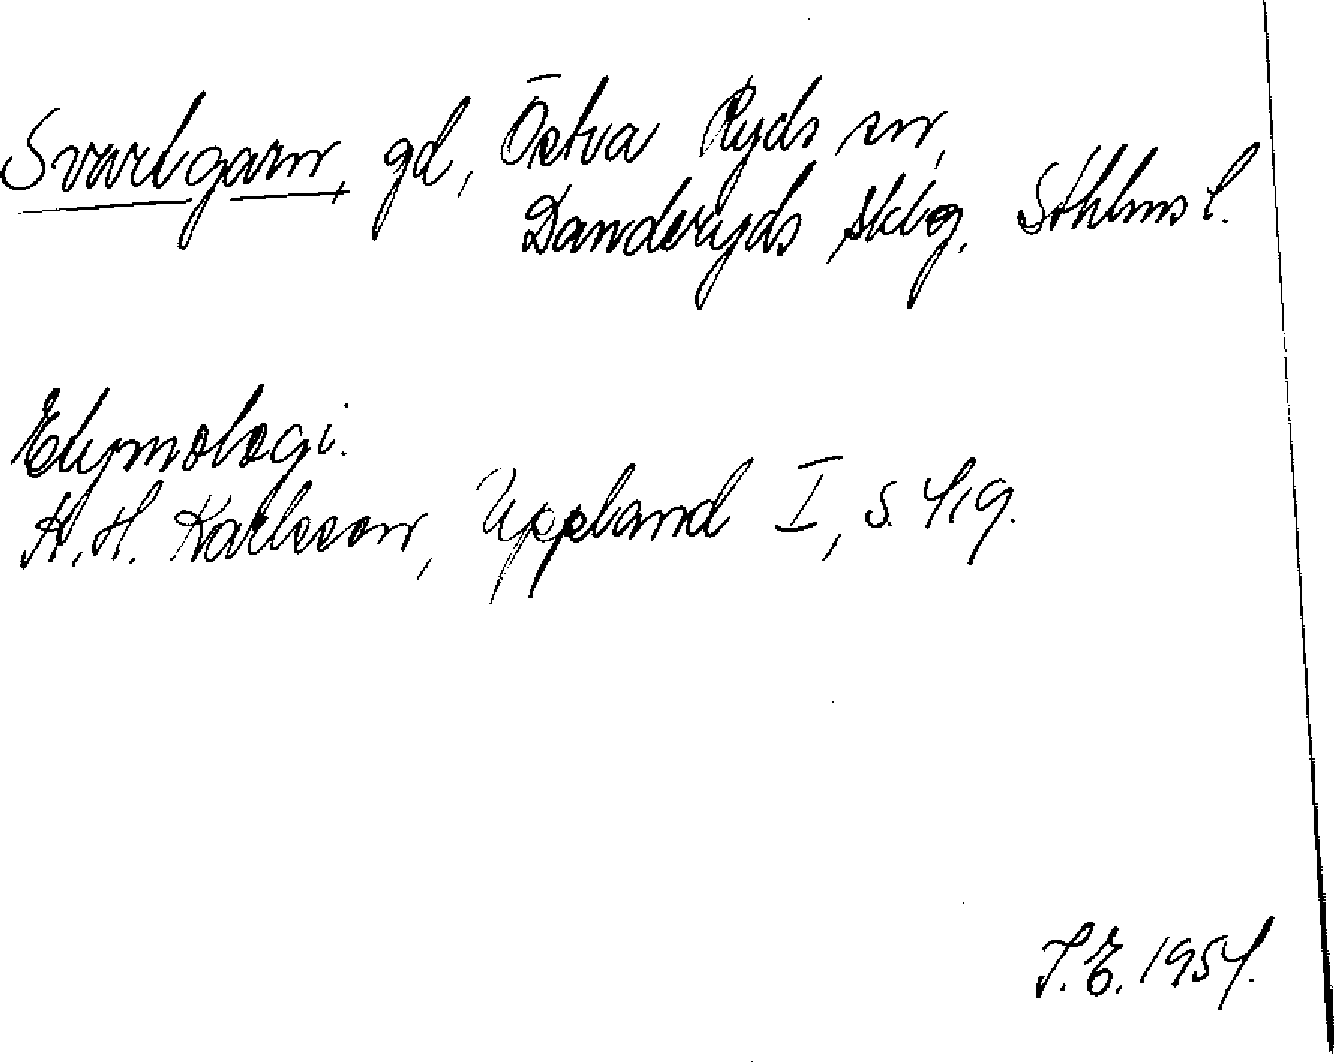 Svartgarn, gd, Östra Ryds sn,
Danderyds sklg. Sthlms l.
Etymologi.
K. H. Karlsson, Uppland I, s. 419.
S. E. 1954.